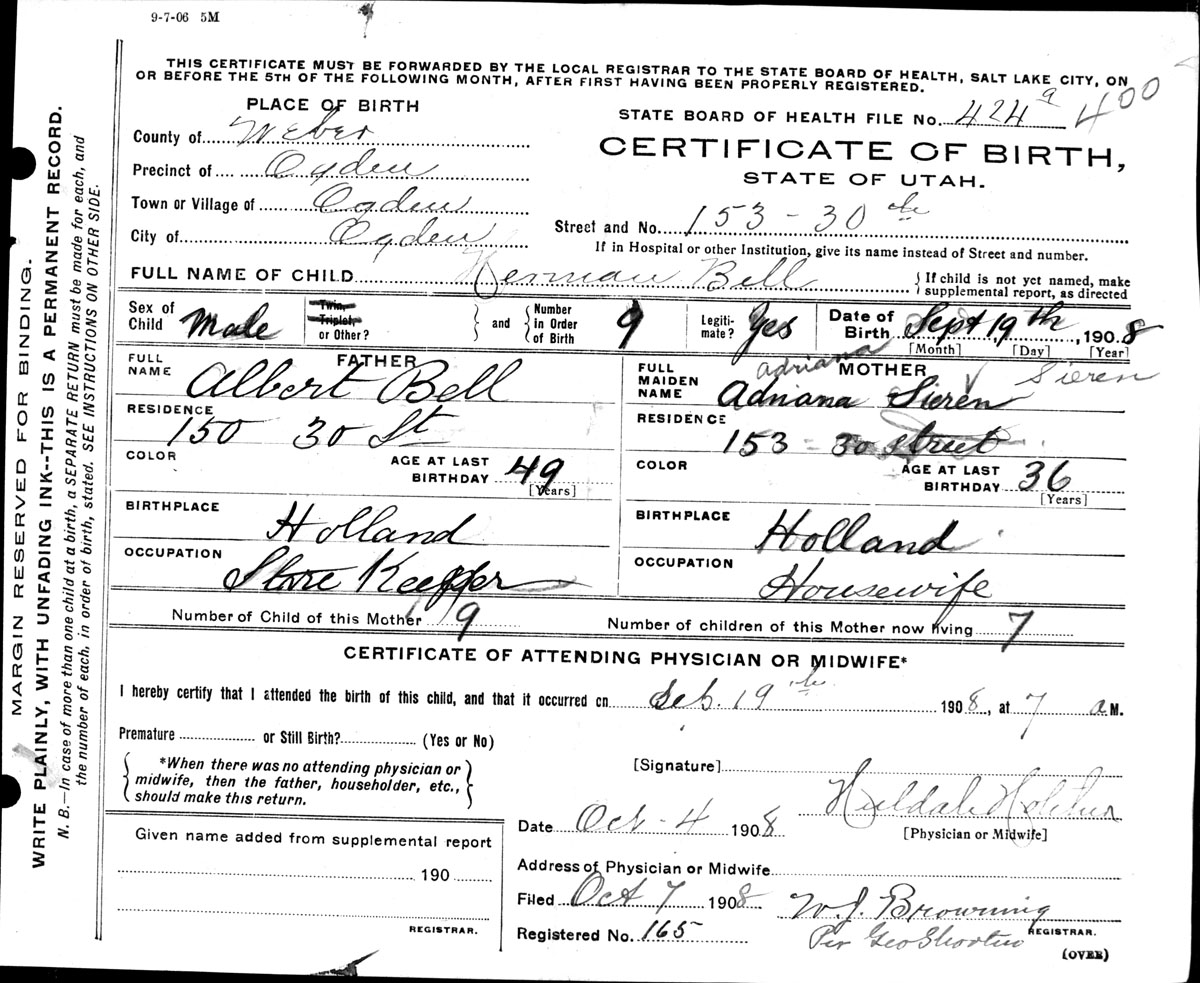 9-7-06 5M
THIS CERTIFICATE MUST BE FORWARDED BY THE LOCAL REGISTRAR TO THE STATE BOARD OF HEALTH, SALT LAKE CITY, ON
OR BEFORE THE 5TH OF THE FOLLOWING MONTH, AFTER FIRST HAVING BEEN PROPERLY REGISTERED.
PLACE OF BIRTH
STATE BOARD OF HEALTH FILE No. 424 a 400
County of Weber
CERTIFICATE OF BIRTH,
Precinct of Ogden
STATE OF UTAH.
Town or Village of Ogden
Street and No. 153 - 30 th
City of Ogden
If in Hospital or other Institution, give its name instead of Street and number.
FULL NAME OF CHILD Herman Bell
If child is not yet named, make
supplemental report, as directed
Sex of Child Male
Twin, Triplet, or Other?
and Number in Order of Birth 9
Legitimate? Yes
Date of Birth Sept 19th, 1908
[Month] [Day] [Year]
FATHER
FULL NAME Albert Bell
RESIDENCE 150 30 St
COLOR
AGE AT LAST BIRTHDAY 49
[Years]
BIRTHPLACE Holland
OCCUPATION Store Keepper
MOTHER
adriana Sieren
FULL MAIDEN NAME Adriana Sieren
RESIDENCE 153 - 30 street
COLOR
AGE AT LAST BIRTHDAY 36
[Years]
BIRTHPLACE Holland
OCCUPATION Housewife
Number of Child of this Mother 9
Number of children of this Mother now living 7
CERTIFICATE OF ATTENDING PHYSICIAN OR MIDWIFE*
I hereby certify that I attended the birth of this child, and that it occurred on Seb. 19 th 1908, at 7 a M.
Premature or Still Birth? (Yes or No)
*When there was no attending physician or
midwife, then the father, householder, etc.,
should make this return.
[Signature]
[Physician or Midwife]
Date Oct - 4 1908
Given name added from supplemental report
190
REGISTRAR.
Address of Physician or Midwife
Filed Oct 7 1908
W. J. Browning
REGISTRAR.
Registered No. 165
Per Geo
(OVER)
MARGIN RESERVED FOR BINDING.
WRITE PLAINLY, WITH UNFADING INK--THIS IS A PERMANENT RECORD.
N. B.—In case of more than one child at a birth, a SEPARATE RETURN must be made for each, and
the number of each, in order of birth, stated. SEE INSTRUCTIONS ON OTHER SIDE.